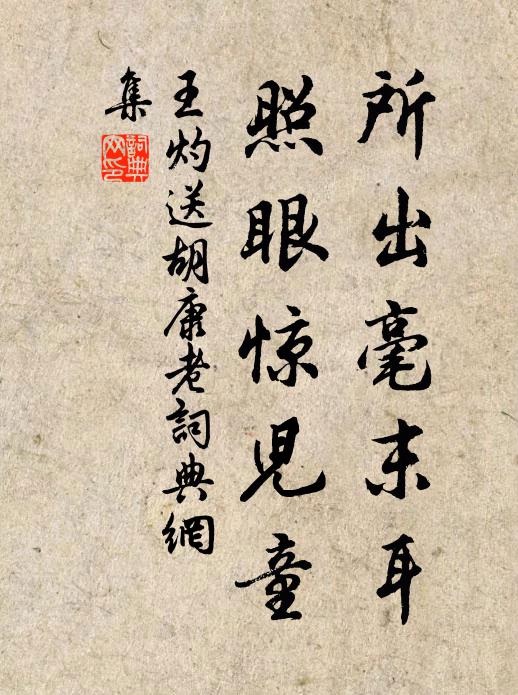 所出毫末耳
照眼惊兒童
王灼送胡康老詞典網
集
詞典網印